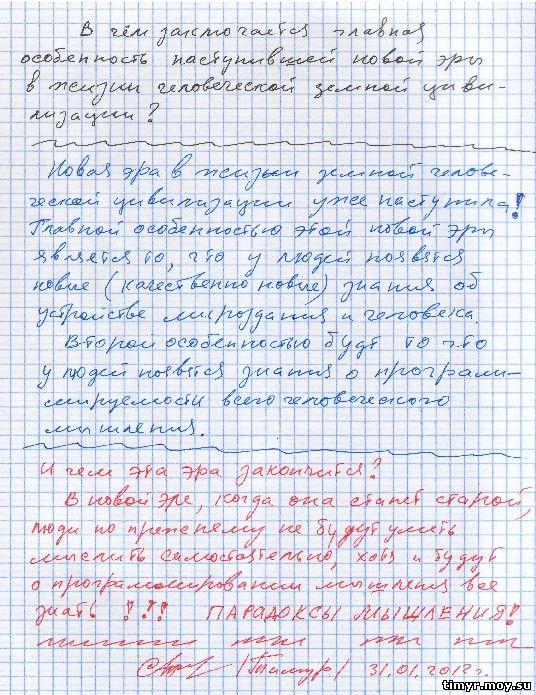 В чём заключается главная
особенность наступившей новой эры
в жизни человеческой земной циви-
лизации?
Новая эра в жизни земной челове-
ческой цивилизации уже наступила!
Главной особенностью этой новой эры
является то, что у людей появятся
новые (качественно новые) знания об
устройстве мироздания и человека.
Второй особенностью будт то что
у людей появятся знания о програм-
мируемости всего человеческого
мышления.
И чем эта эра закончится?
В новой эре, когда она станет старой,
люди по прежнему не будут уметь
мыслить самостоятельно, хотя и будут
о программировании мышления все
знать!?!! ПАРАДОКСЫ МЫШЛЕНИЯ!
/Тимур/ 31.01.2012г.
timyr.moy.su